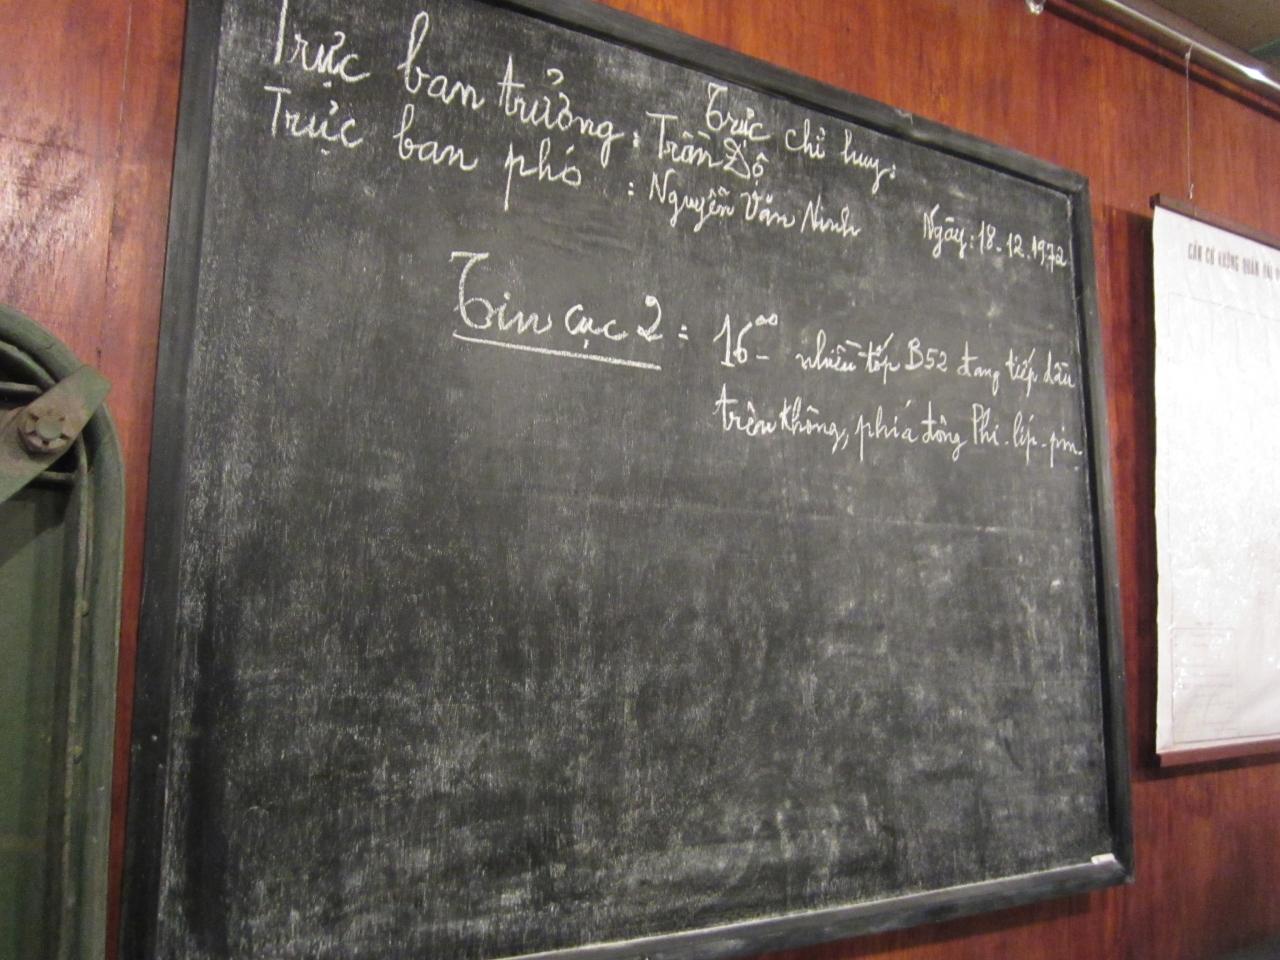 Trực chỉ huy:
Trực ban trưởng: Trần Độ
Trực ban phó : Nguyễn Văn Ninh
Ngày: 18.12.1972
Tin cục 2 : 16⁰⁰ nhiều tốp B52 đang tiếp dầu
trên không, phía đông Phi-líp-pin.
CĂN CỨ KHÔNG QUÂN